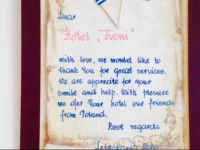 Dear
"Hotel „Fieni"
With love, we would like to
thank You for great services.
We are appreciate for your
smile and help. With pleasure
we ofer Your hotel our friends
from Poland.
Best regards